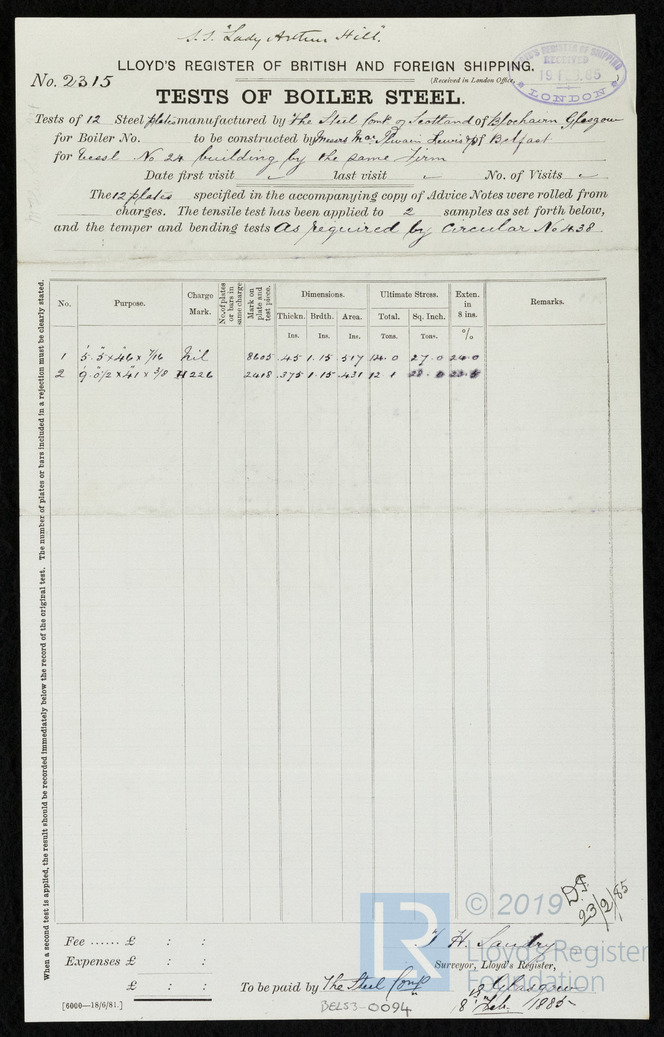 S.S. "Lady Arthur Hill".
LLOYD'S REGISTER OF BRITISH AND FOREIGN SHIPPING.
No. 2315
(Received in London Office,
LLOYD'S REGISTER OF SHIPPING
RECEIVED
19 FEB. 85
LONDON
TESTS OF BOILER STEEL.
Tests of 12 Steel plates manufactured by The Steel Comp. of Scotland of Blochairn Glasgow
for Boiler No. to be constructed by Messrs Mac Lewis of Belfast
for Vessl No 24 building by the same firm
Date first visit last visit No. of Visits
The 12 plates specified in the accompanying copy of Advice Notes were rolled from
charges. The tensile test has been applied to 2 samples as set forth below,
and the temper and bending tests As required by Circular No 438.
When a second test is applied, the result should be recorded immediately below the record of the original test. The number of plates or bars included in a rejection must be clearly stated.
No. Purpose. Charge Mark. No. of plates or bars in same charge Mark on plate and test piece. Dimensions. Ultimate Stress. Exten. in 8 ins. Remarks.
Thickn. Brdth. Area. Total. Sq. Inch.
Ins. Ins. Ins. Tons. Tons. %
1 5'.5" x 46" x 7/16 Nil 8605 .45 1.15 .517 14.0 27.0 24.0
2 9'.0 1/2" x 41" x 3/8 H226 2418 .375 1.15 .431 12.1
D.F.
23/2/85
LR
© 2019
Lloyd's Register
Foundation
Fee ...... £ : :
Expenses £ : :
£ : :
T. H. Sandry
Surveyor, Lloyd's Register,
To be paid by The Steel Comp Glasgow
8 Feb. 1885
[6000—18/6/81.]
BELS3-0094